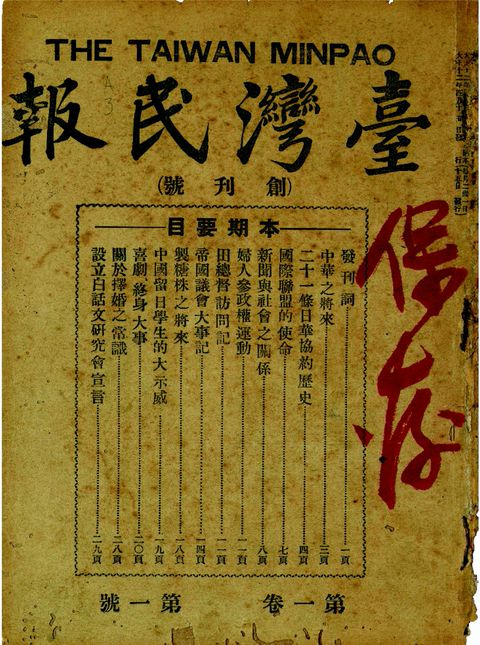 THE TAIWAN MINPAO
臺灣民報
(創刊號)
本期要目
發刊詞 一頁
中華之將來 三頁
二十一條日華協約歷史 四頁
國際聯盟的使命 七頁
新聞與社會之關係 八頁
婦人參政權運動 一一頁
田總督訪問記 一一頁
帝國議會大事記 一四頁
製糖株之將來 一八頁
中國留日學生的大示威 一九頁
喜劇 終身大事 二〇頁
關於擇婚之常識 二八頁
設立白話文研究會宣言 二九頁
第一卷 第一號
保存